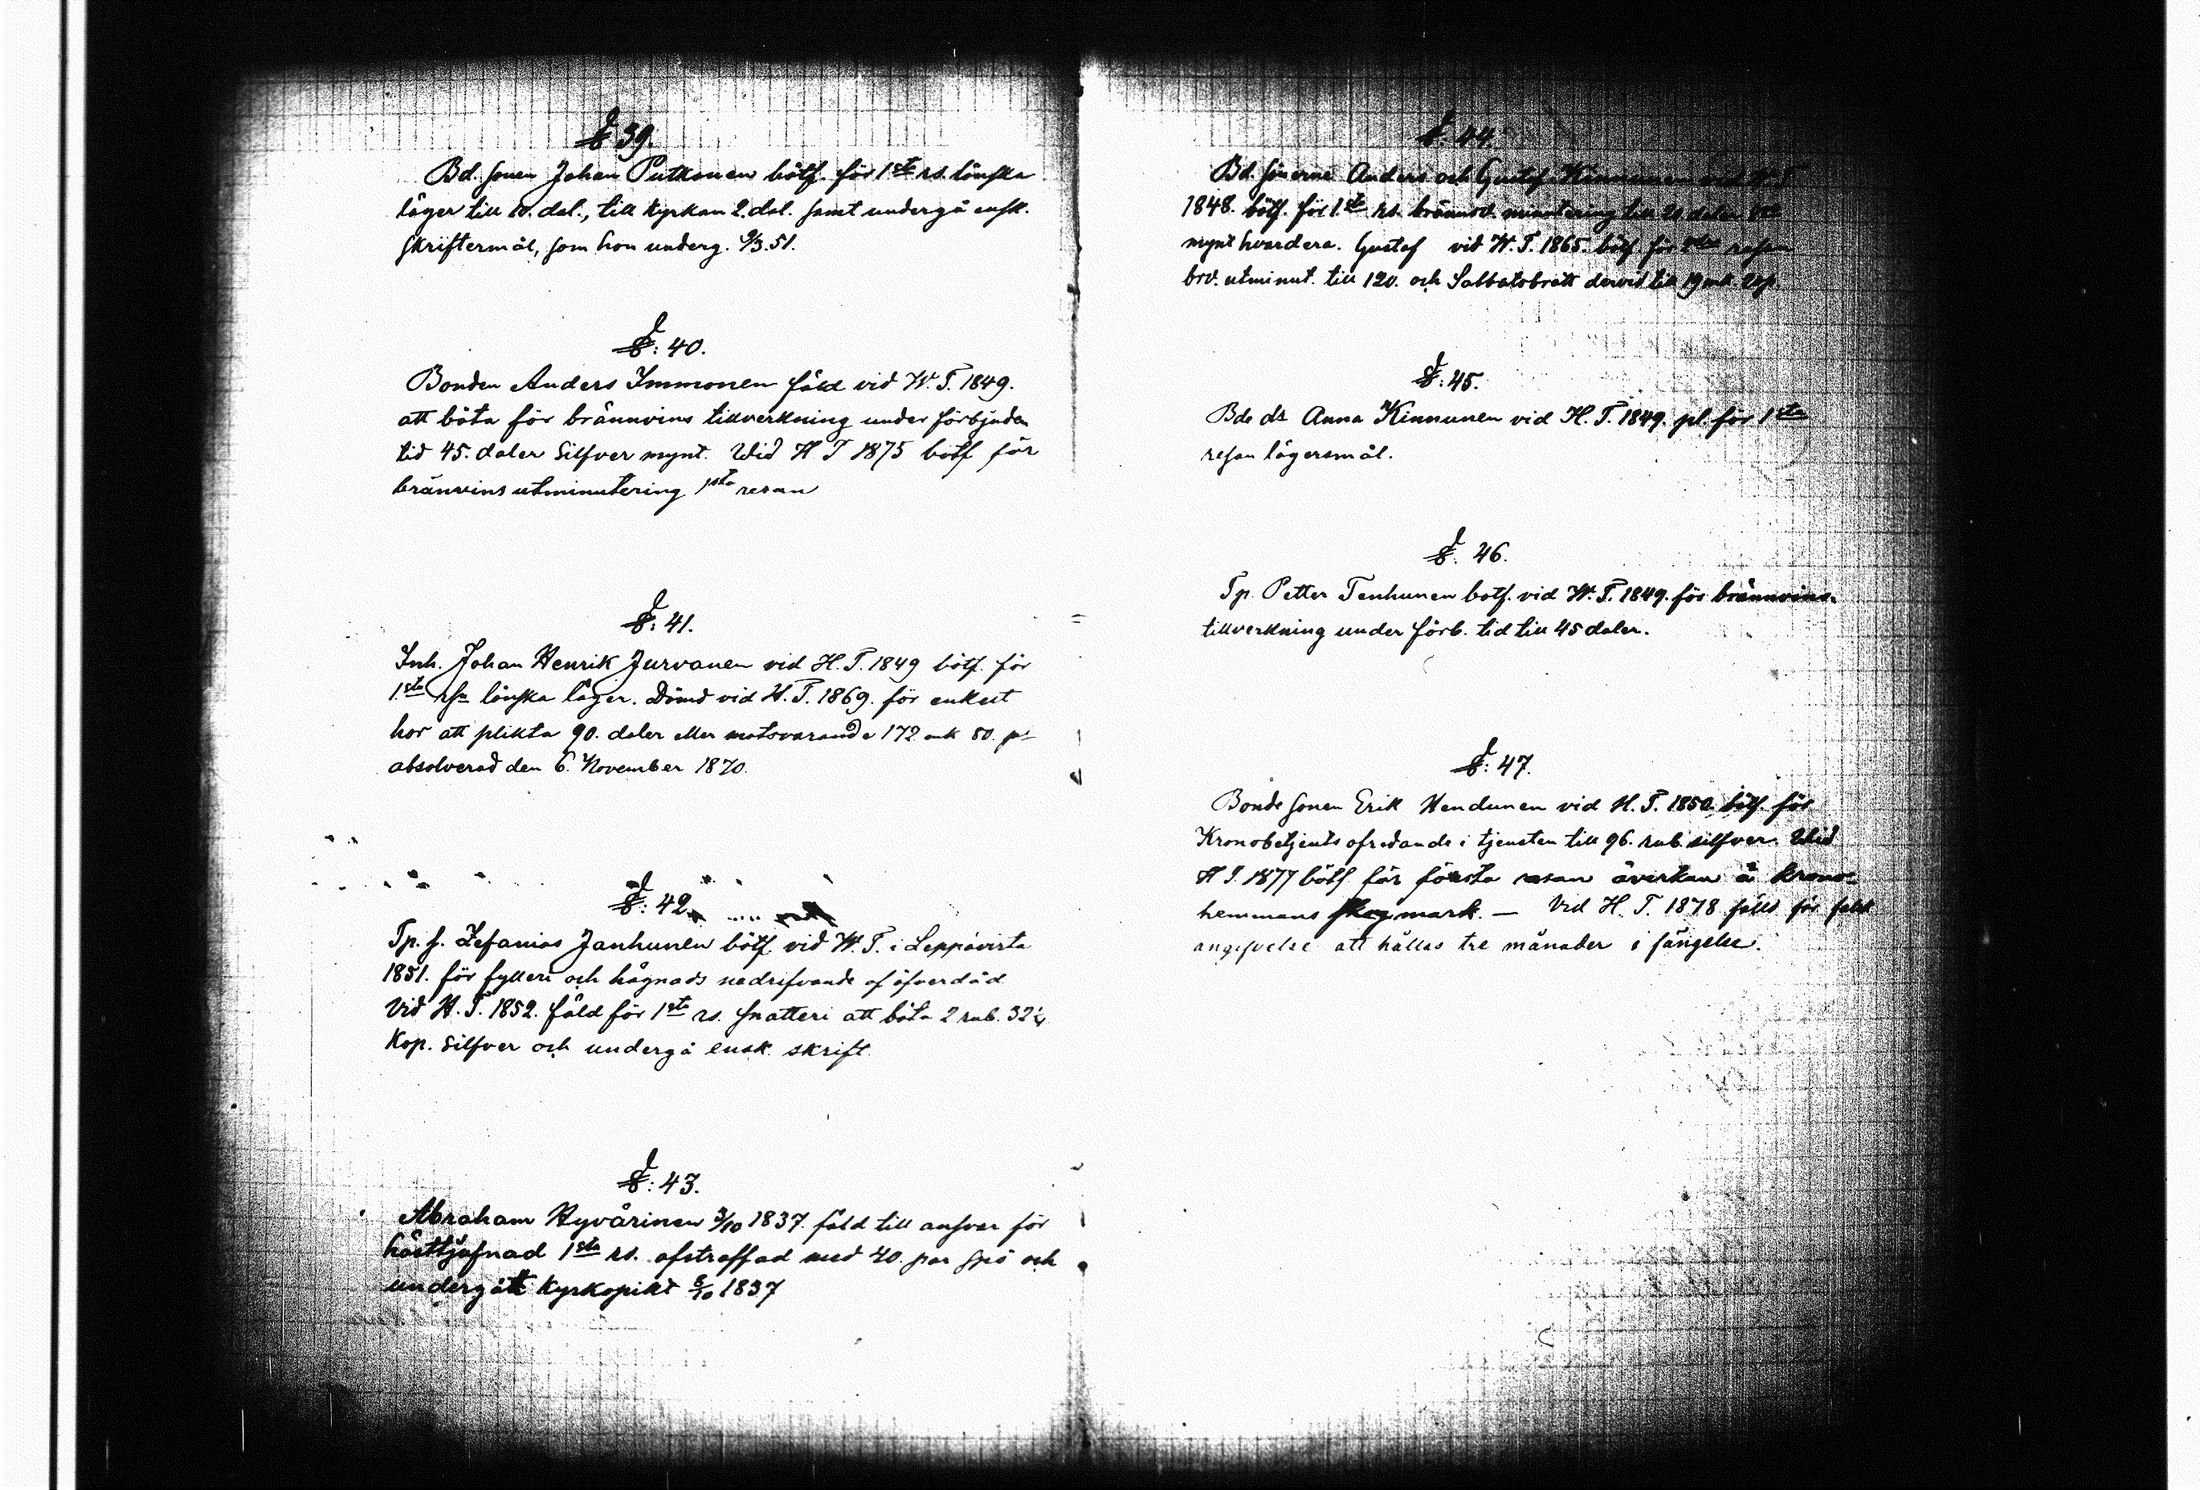 § 39.
Bd. sonen Johan Putkonen bötf. för 1sta rs. lönska
läger till 10. dal., till kyrkan 2. dal. samt undergå ensk.
skriftermål, som hon underg. 9/3.51.
§: 40.
Bonden Anders Immonen fäld vid W. T. 1849.
att böta för brännvins tillverkning under förbjuden
tid 45. daler Silfver mynt. Wid H T 1875 bötf för
bränvins utminutering 1sta resan
§: 41.
Inh. Johan Henrik Jurvanen vid H. T. 1849 bötf. för
1.sta rsn lönska läger. Dömd vid H. T. 1869. för enkelt
hor att plikta 90. daler eller motsvarande 172 mk 80. pi
absolverad den 6. November 1870.
§: 42.
Tp. s. Zefanias Janhunen bötf. vid W. T. i Leppävirta
1851. för fylleri och hägnads nedrifvande af öfverdåd
Vid H. T. 1852. fäld för 1sta rs. snatteri att böta 2 rub. 32
Kop. Silfver och undergå ensk. skrift.
§: 43.
Abraham Hyvärinen 3/10 1837. fäld till ansvar för
hästtjufnad 1sta rs. afstraffad med 40. par spö och
undergått kyrkoplikt 8/10 1837
§: 44.
Bd. sönerne Anders och Gustaf Kinnunen vid H. T
1848. bötf. för 1.sta rs. brännv. minutering till 20 daler
mynt hvardera. Gustaf vid W. T. 1865. bötf. för resan
brv. utminut. till 120. och Sabbatsbrott dervid till 19 mk. 20 p.
§: 45.
Bde dr Anna Kinnunen vid H. T. 1849. pl. för 1sta
resan lägersmål.
§. 46.
Tp. Petter Tenhunen botf. vid W. T. 1849. för brännvins-
tillverkning under förb. tid till 45 daler.
§: 47.
Bonde sonen Erik Hendunen vid H. T. 1850. bötf. för
Kronobetjents ofredande i tjensten till 96. rub. silfver. Wid
H T. 1877 bötf för första resan åverkan å krono-
hemmans skogmark. — Vid H. T. 1878 fälld för falsk
angifvelse att hållas tre månader i fängelse.